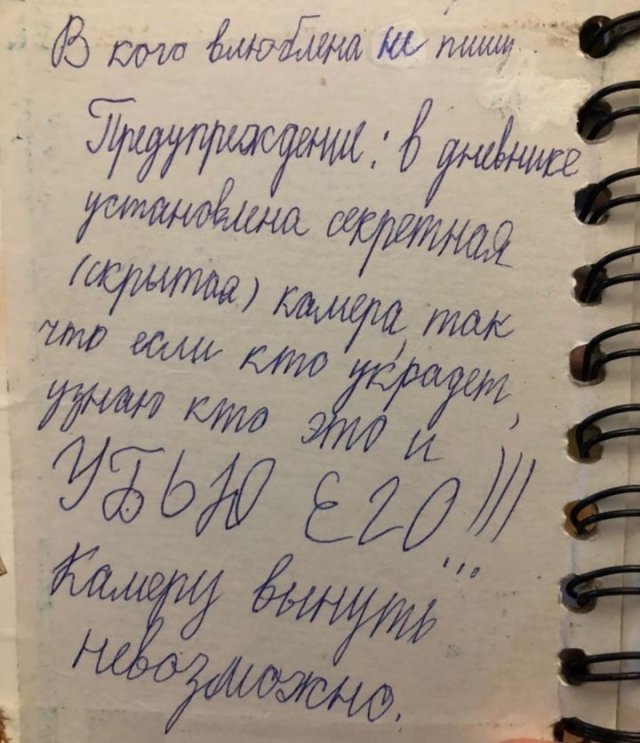 В кого влюблена не пишу...
Предупреждение: в дневнике
установлена секретная
(скрытая) камера, так
что если кто украдет,
узнаю кто это и
УБЬЮ ЕГО!!!
Камеру вынуть
невозможно.